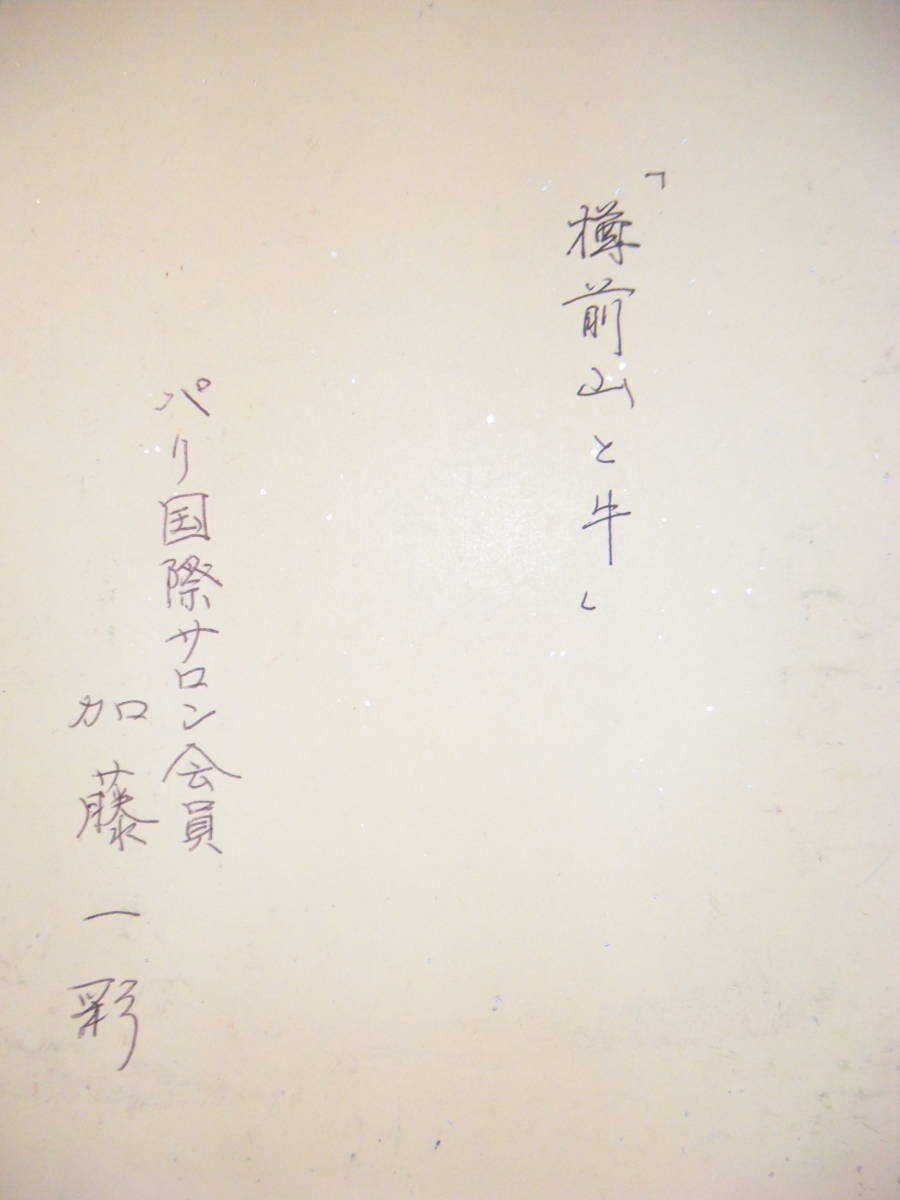 「樽前山と牛」
パリ国際サロン会員
加藤一彩